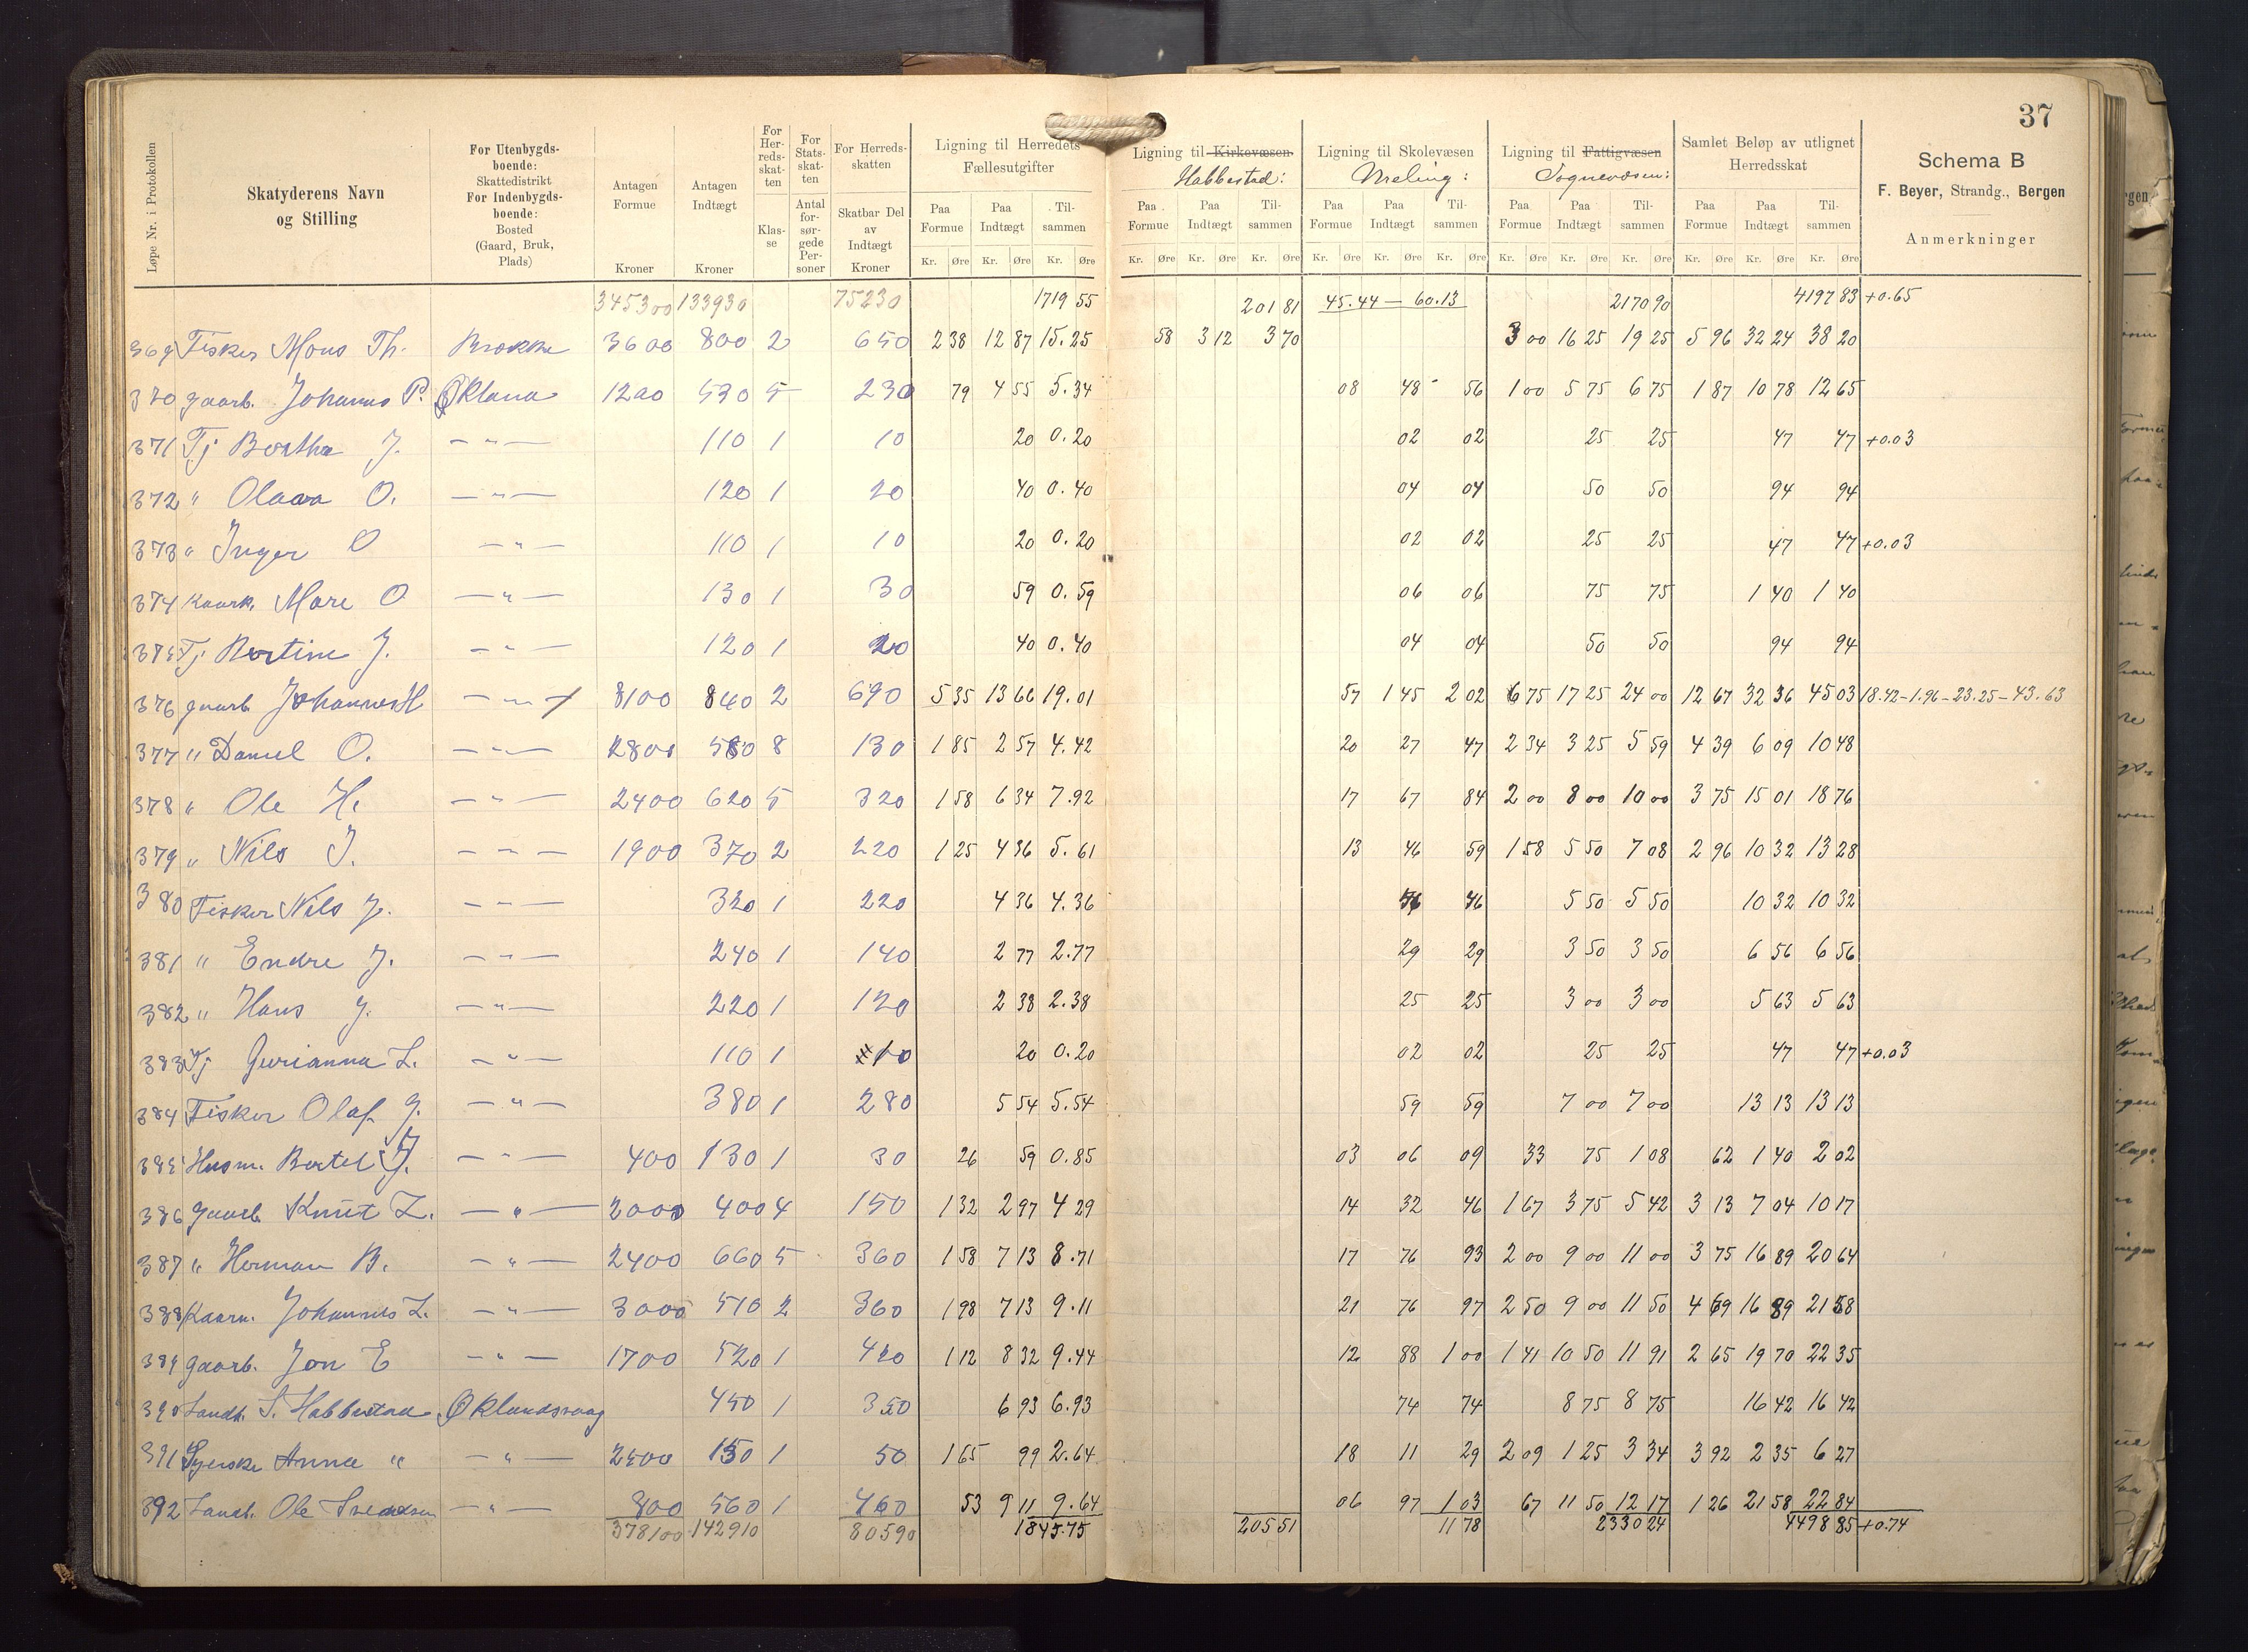 37
Løpe Nr. i Protokollen
Skatyderens Navn og Stilling
For Utenbygdsboende: Skattedistrikt For Indenbygdsboende: Bosted (Gaard, Bruk, Plads)
Antagen Formue Kroner
Antagen Indtægt Kroner
For Herredsskatten Klasse
For Statsskatten Antal forsørgede Personer
For Herredsskatten Skatbar Del av Indtægt Kroner
Ligning til Herredets Fællesutgifter
Paa Formue Paa Indtægt Tilsammen
Kr. Øre Kr. Øre Kr. Øre
Ligning til Kirkevæsen Habbestad:
Paa Formue Paa Indtægt Tilsammen
Kr. Øre Kr. Øre Kr. Øre
Ligning til Skolevæsen Meling:
Paa Formue Paa Indtægt Tilsammen
Kr. Øre Kr. Øre Kr. Øre
Ligning til Fattigvæsen Sognevæsen:
Paa Formue Paa Indtægt Tilsammen
Kr. Øre Kr. Øre Kr. Øre
Samlet Beløp av utlignet Herredsskat
Paa Formue Paa Indtægt Tilsammen
Kr. Øre Kr. Øre Kr. Øre
Schema B
F. Beyer, Strandg., Bergen
Anmerkninger
345300 133930 75230 1719 55 201 81 45.44 — 60.13 2170 90 4197 83 +0.65
369 Fisker Mons Th. Brokke 3600 800 2 650 2 38 12 87 15.25 58 3 12 3 70 3 00 16 25 19 25 5 96 32 24 38 20
370 gaarb. Johannes P. Økland 1200 530 5 230 79 4 55 5.34 08 48 56 1 00 5 75 6 75 1 87 10 78 12 65
371 Tj Bertha J. — " — 110 1 10 20 0.20 02 02 25 25 47 47 +0.03
372 " Olava O. — " — 120 1 20 40 0.40 04 04 50 50 94 94
373 " Inger O — " — 110 1 10 20 0.20 02 02 25 25 47 47 +0.03
374 Kaark. Mare O — " — 130 1 30 59 0.59 06 06 75 75 1 40 1 40
375 Tj Bertine J. — " — 120 1 20 40 0.40 04 04 50 50 94 94
376 gaarb Johannes H — " — 8100 840 2 690 5 35 13 66 19.01 57 1 45 2 02 6 75 17 25 24 00 12 67 32 36 45 03 18.42-1.96-23.25-43.63
377 " Daniel O. — " — 2800 580 8 130 1 85 2 57 4.42 20 27 47 2 34 3 25 5 59 4 39 6 09 10 48
378 " Ole H. — " — 2400 620 5 320 1 58 6 34 7.92 17 67 84 2 00 8 00 10 00 3 75 15 01 18 76
379 " Nils J. — " — 1900 370 2 220 1 25 4 36 5.61 13 46 59 1 58 5 50 7 08 2 96 10 32 13 28
380 Fisker Nils J. — " — 320 1 220 4 36 4.36 46 46 5 50 5 50 10 32 10 32
381 " Endre J. — " — 240 1 140 2 77 2.77 29 29 3 50 3 50 6 56 6 56
382 " Hans J. — " — 220 1 120 2 38 2.38 25 25 3 00 3 00 5 63 5 63
383 Tj Gurianna L. — " — 110 1 10 20 0.20 02 02 25 25 47 47 +0.03
384 Fisker Olaf J. — " — 380 1 280 5 54 5.54 59 59 7 00 7 00 13 13 13 13
385 Husm. Bertel J. — " — 400 130 1 30 26 59 0.85 03 06 09 33 75 1 08 62 1 40 2 02
386 gaarb Knut L. — " — 2000 400 4 150 1 32 2 97 4 29 14 32 46 1 67 3 75 5 42 3 13 7 04 10 17
387 " Herman B. — " — 2400 660 5 360 1 58 7 13 8.71 17 76 93 2 00 9 00 11 00 3 75 16 89 20 64
388 Kaarm. Johannes L. — " — 3000 510 2 360 1 98 7 13 9.11 21 76 97 2 50 9 00 11 50 4 69 16 89 21 58
389 gaarb. Jon E — " — 1700 520 1 420 1 12 8 32 9.44 12 88 1 00 1 41 10 50 11 91 2 65 19 70 22 35
390 Landh. S. Habbestad Øklandsvaag 450 1 350 6 93 6.93 74 74 8 75 8 75 16 42 16 42
391 Syerske Anna " — " — 2500 150 1 50 1 65 99 2.64 18 11 29 2 09 1 25 3 34 3 92 2 35 6 27
392 Landh. Ole Svendsen — " — 800 560 1 460 53 9 11 9.64 06 97 1 03 67 11 50 12 17 1 26 21 58 22 84
378100 142910 80590 1845.75 205 51 11 78 2330 24 4498 85 +0.74